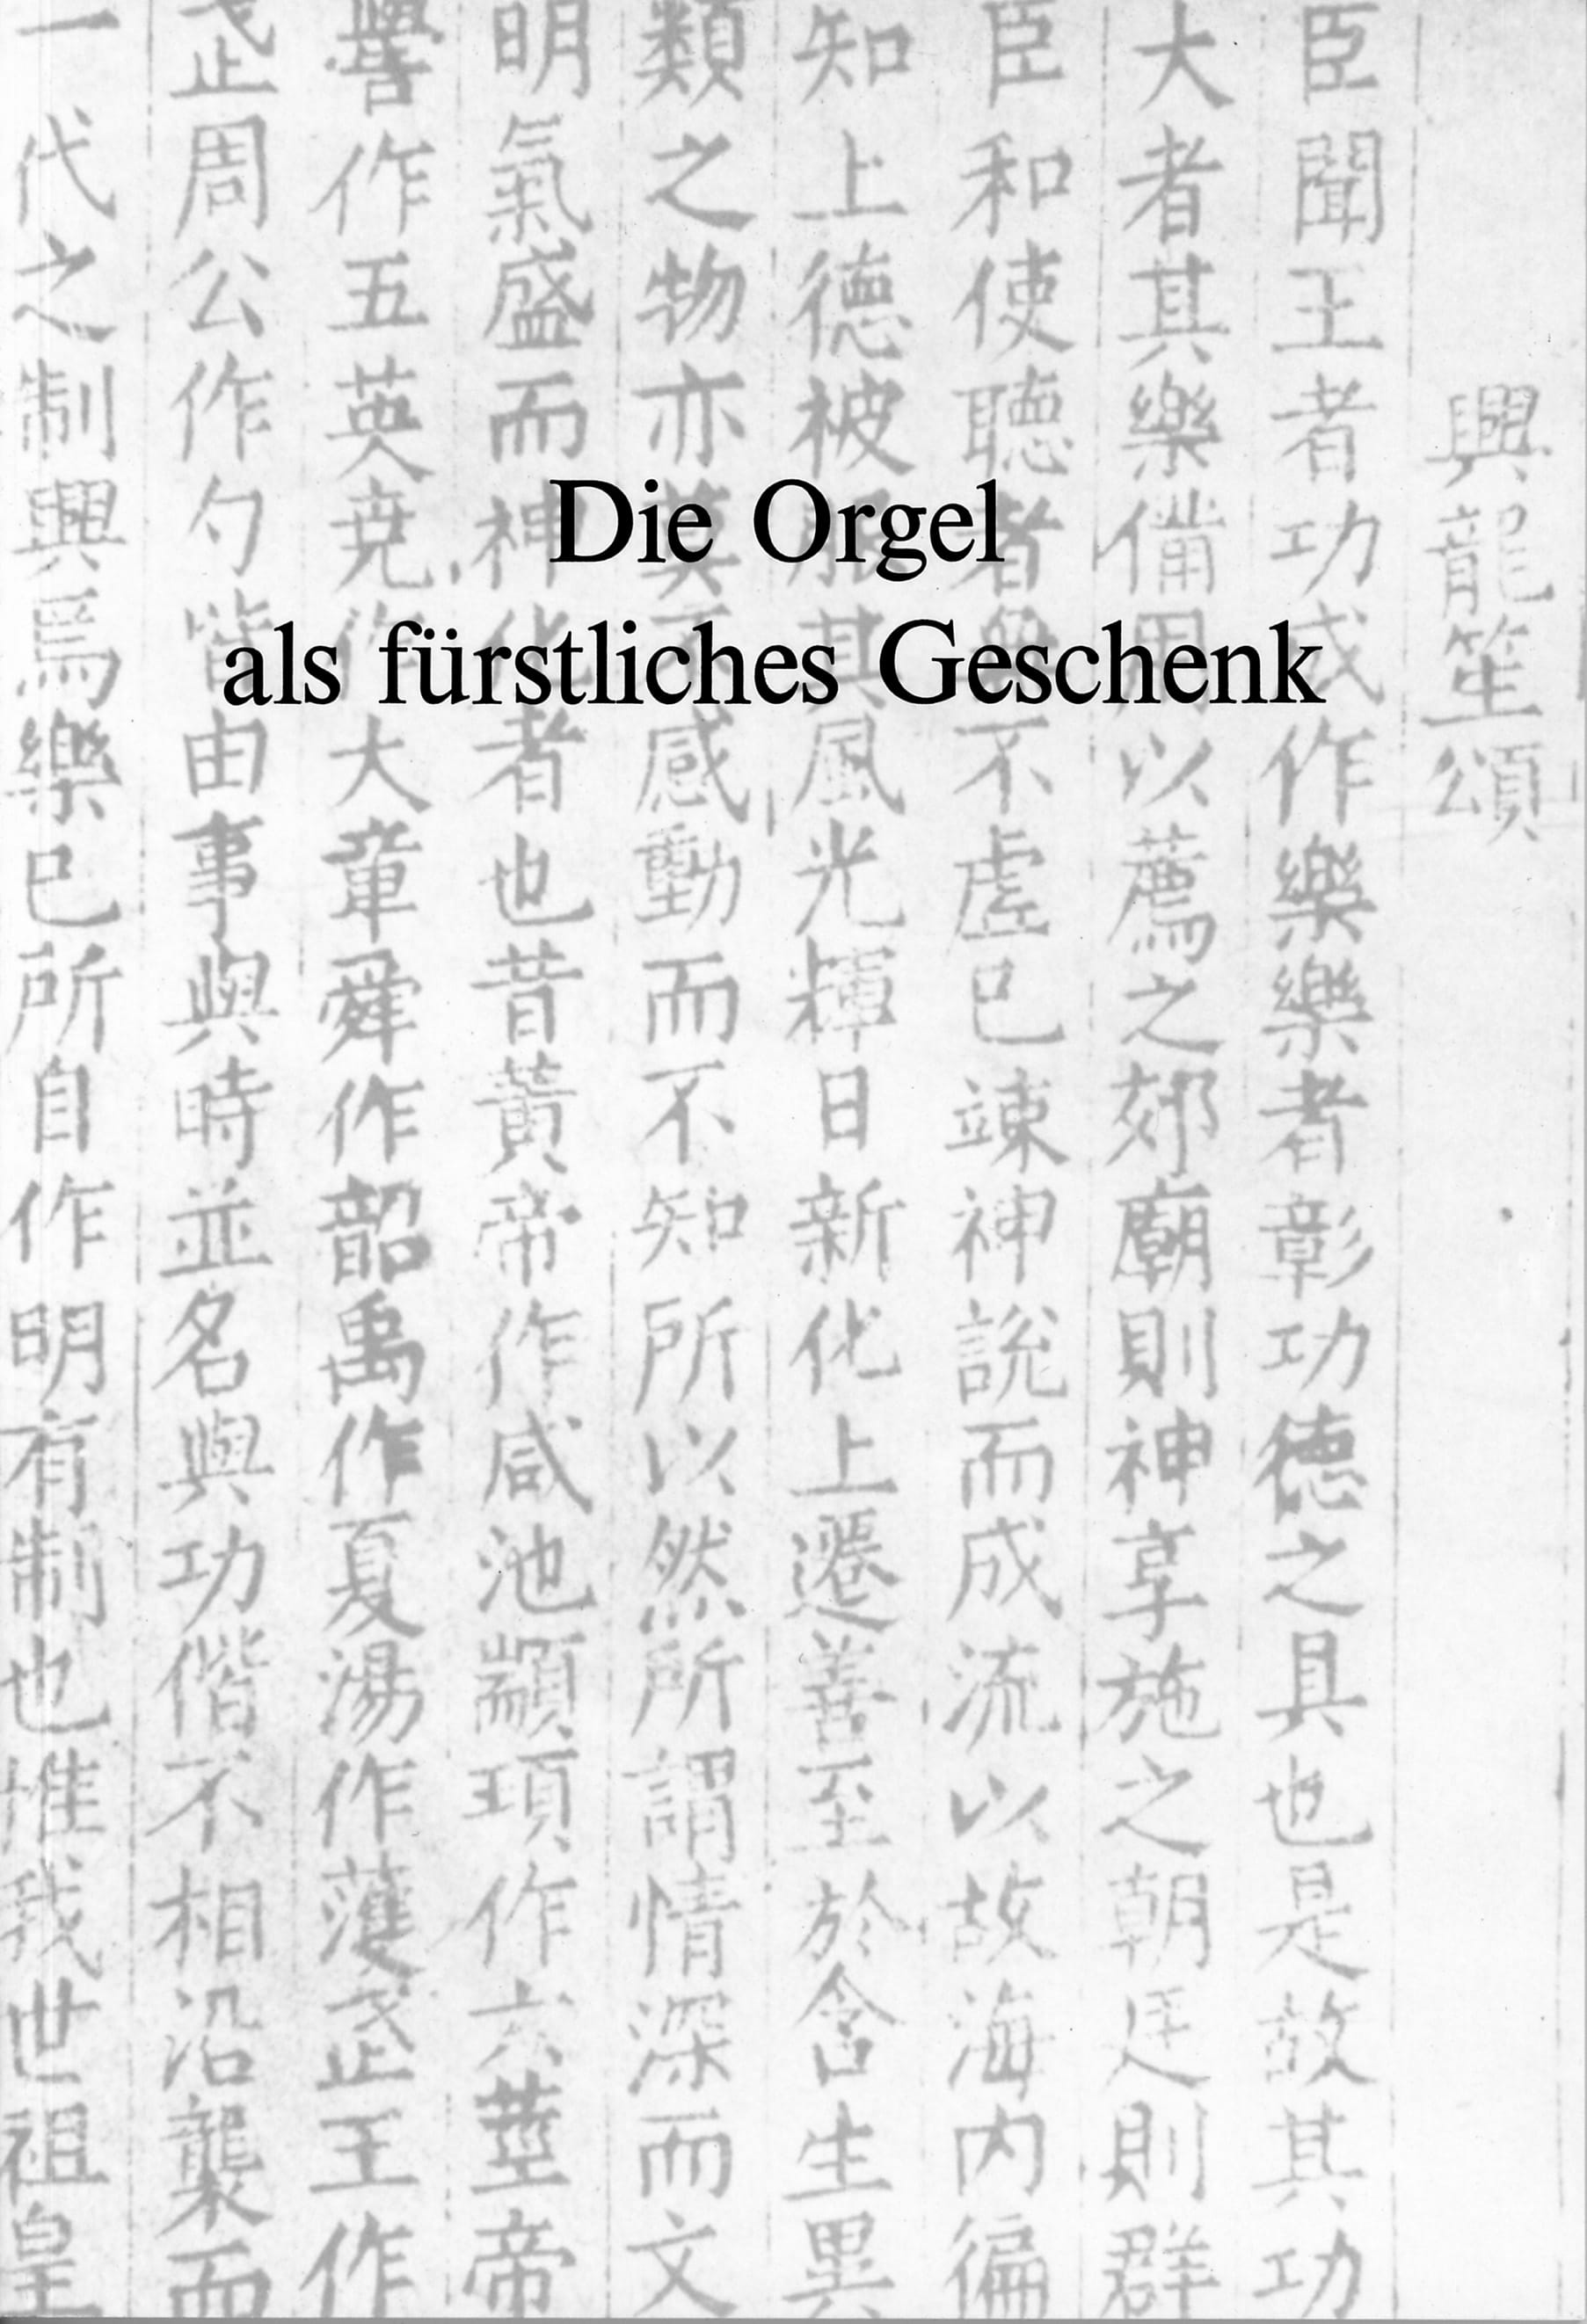 Die Orgel
als fürstliches Geschenk
興龍笙頌
臣聞王者功成作樂樂者彰功德之具也是故其功
大者其樂備用以薦之郊廟則神享施之朝廷則群
臣和使聽者無不虛已竦神説而成流以故海内徧
知上德被服其風光輝日新化上遷善至於含生異
類之物亦莫不感動而不知所以然所謂情深而文
明氣盛而神化者也昔黃帝作咸池顓頊作六莖帝
嚳作五英堯作大章舜作韶禹作夏湯作濩武王作
武周公作勺皆由事與時並名與功偕不相沿襲而
一代之制興焉樂已所自作明有制也惟我世祖皇